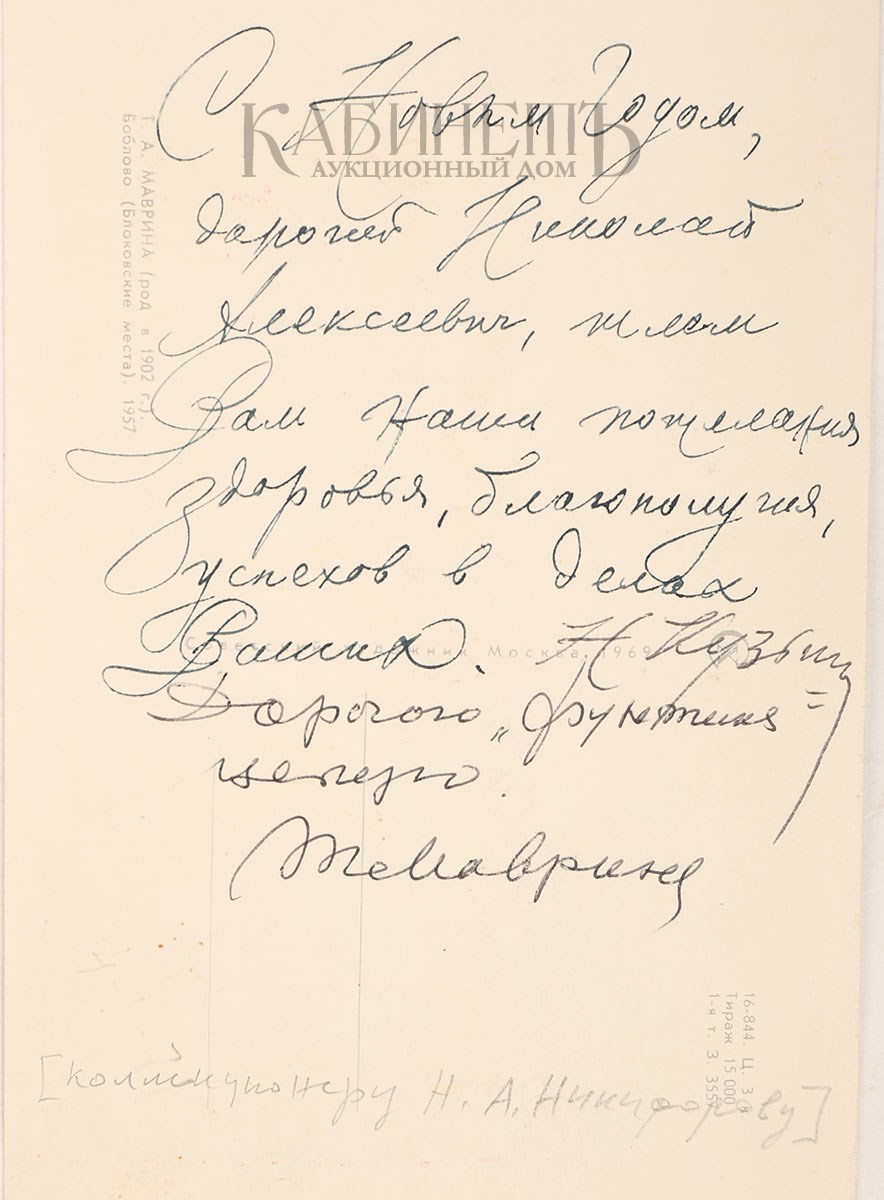 КАБИНЕТЪ
АУКЦИОННЫЙ ДОМ
С Новым Годом,
дорогой Николай
Алексеевич, шлем
Вам наши пожелания
здоровья, благополучия,
успехов в делах
Ваших. Н Кузьмин
Дорогого „Фунтика
целую.
ТМаврина
Т. А. МАВРИНА (род в 1902 г.).
Боблово (Блоковские места). 1957
Советский художник Москва 1969
16-844. Ц. 3
Тираж 15 000
1-я т. З. 355
[коллекционеру Н. А. Никифорову]